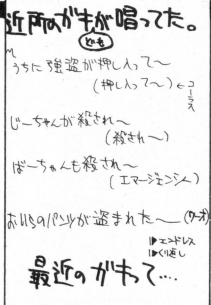 近所のガキが唱ってた。
ども
うちに強盗が押し入って〜
(押し入って〜)←コーラス
じーちゃんが殺され〜
(殺され〜)
ばーちゃんも殺され〜
(エマージェンシー)
おいらのパンツが盗まれた〜(ワーオ)
▶エンドレス
▶くり返し
最近のガキって‥‥